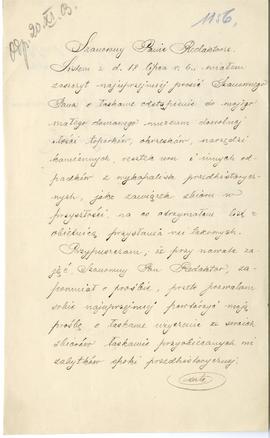 odp. 20/XI. 13.
1156.
Szanowny Panie Redaktorze.
Listem z d. 18 lipca r. b. miałem
zaszczyt najuprzejmiej prosić Szanownego
Pana o łaskawe odstąpienie do mojego
małego domowego muzeum dowolnej
ilości toporków, okrzesków, narzędzi
kamiennych, resztek urn i innych od-
padków z wykopalisk przedhistorycz-
nych, jako zawiązek zbioru w
przyszłości, na co otrzymałem list z
obietnicą przysłania rzeczonych.
Przypuszczam, że przy nawale za-
jęć, Szanowny Pan Redaktor, za-
pomniał o prośbie, przeto pozwalam
sobie najuprzejmiej powtórzyć moją
prośbę o łaskawe użyczenie ze swoich
zbiorów łaskawie przyobiecanych mi
zabytków epoki przedhistorycznej.